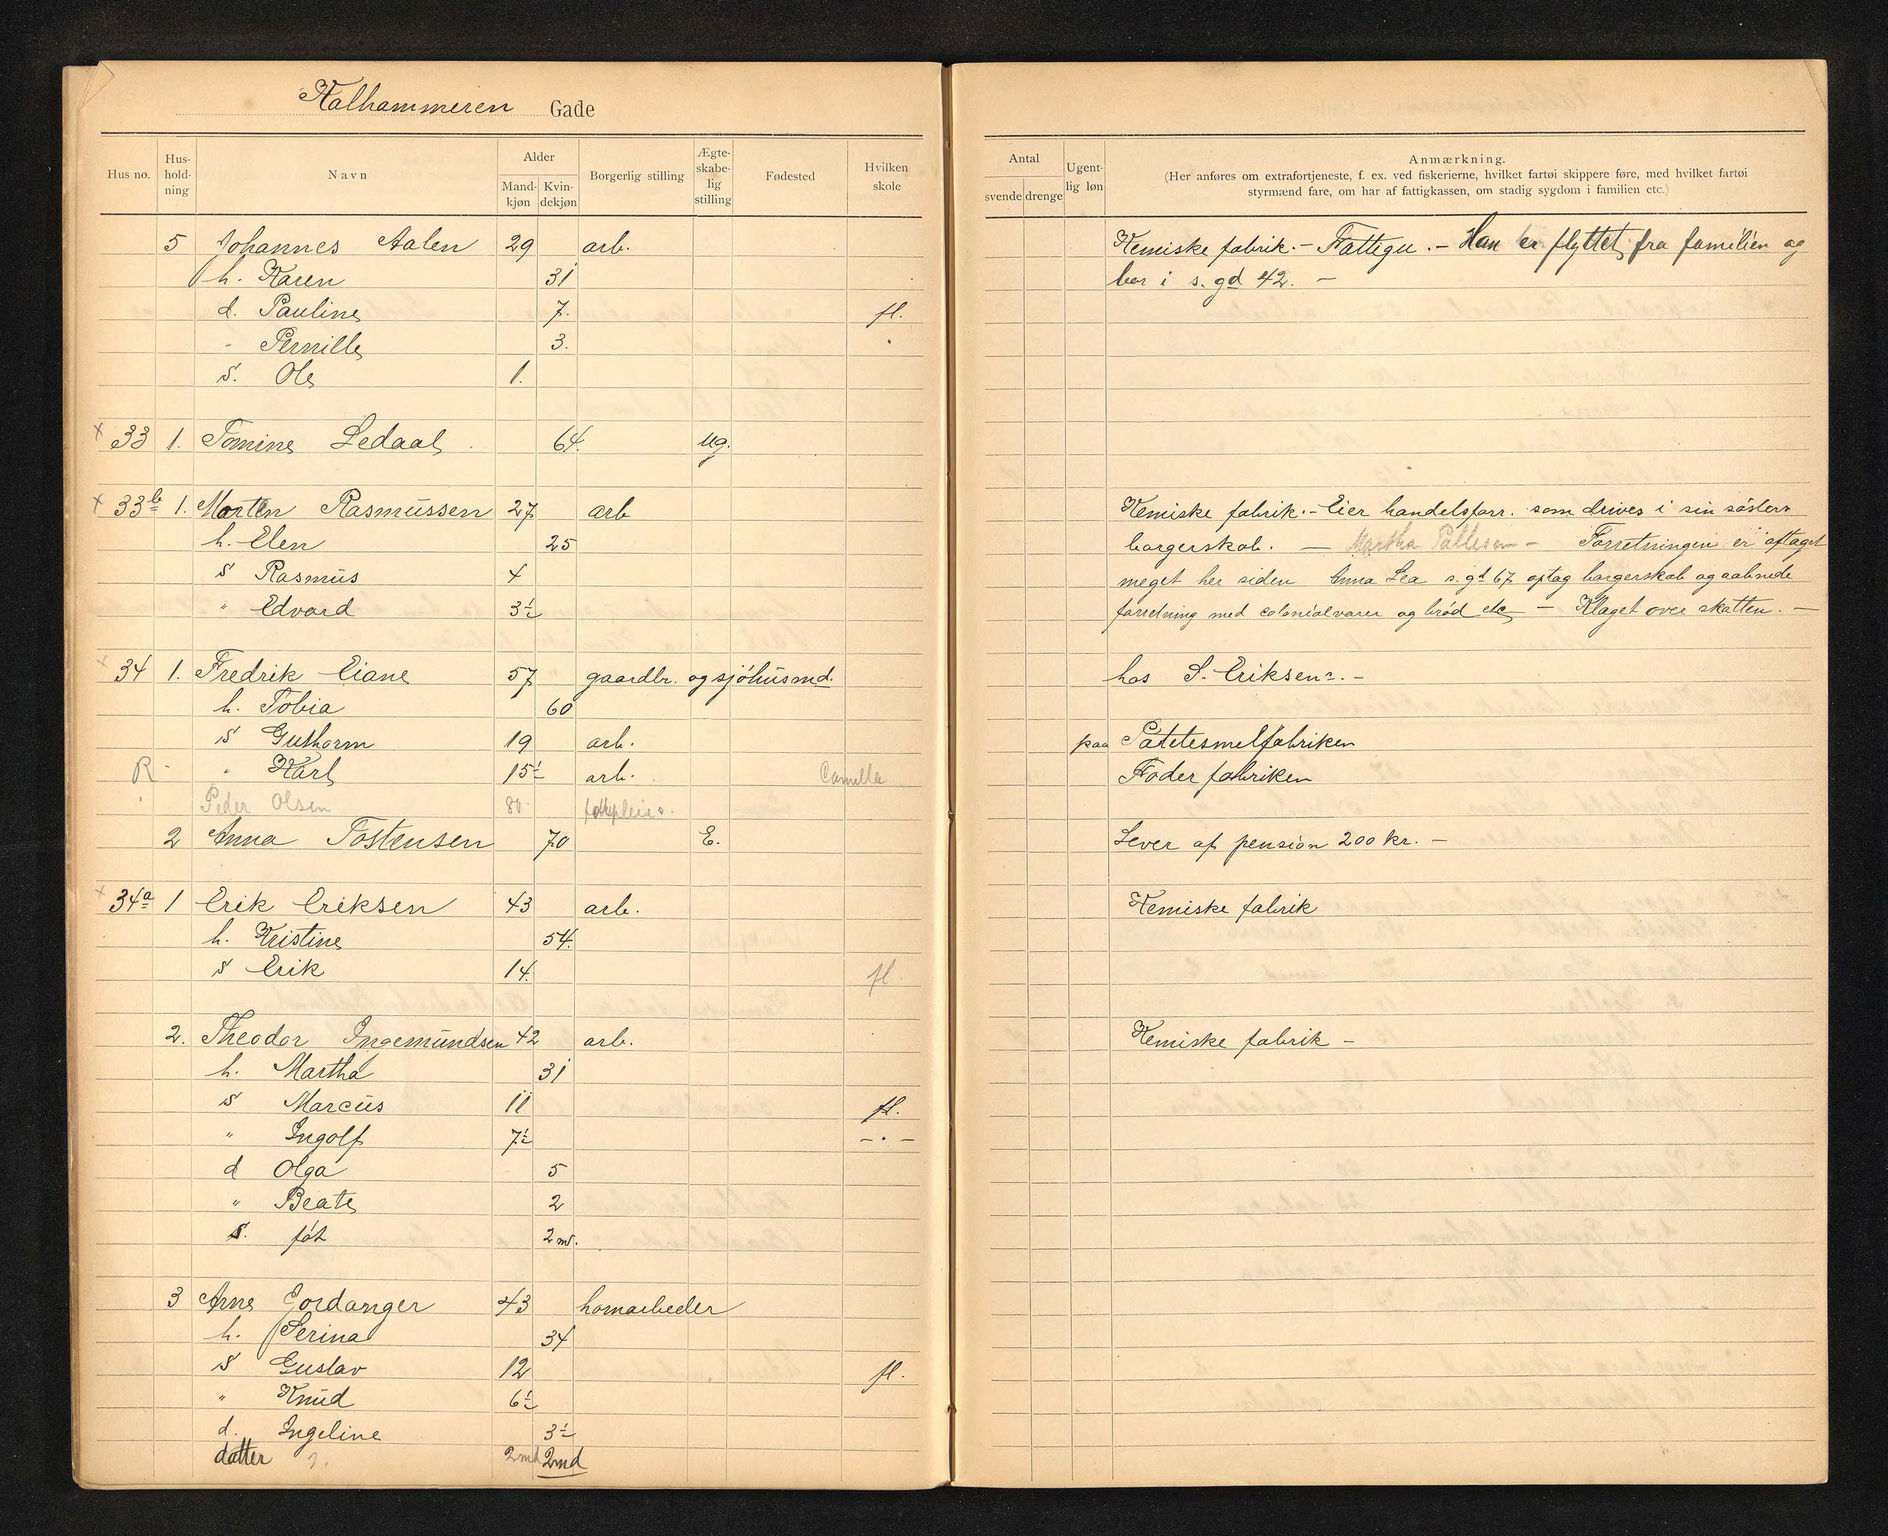 Kalhammeren Gade
Hus no. Hus-hold-ning Navn Alder Mand-kjøn Kvin-dekjøn Borgerlig stilling Ægte-skabe-lig stilling Fødested Hvilken skole
Antal svende drenge Ugent-lig løn Anmærkning.
(Her anføres om extrafortjeneste, f. ex. ved fiskerierne, hvilket fartøi skippere føre, med hvilket fartøi
styrmænd fare, om har af fattigkassen, om stadig sygdom i familien etc.)
5 Johannes Aalen 29 arb. Kemiske fabrik. – Fattigu. – Han er flyttet fra familien og
h. Karen 31 bor i s. gd 42. –
d. Pauline 7. fl.
" Pernille 3. "
s. Ole 1.
x 33 1. Tomine Ledaal 64. ug.
x 33b 1. Morten Rasmussen 27 arb Kemiske fabrik. – Eier handelsforr. som drives i sin søsters
h. Elen 25 borgerskab. – Martha Pallesen – Forretningen er aftaget
s Rasmus 4 meget her siden Anna Lea s. gd 67 optog borgerskab og aabnede
" Edvard 3½ forretning med colonialvarer og brød etc – Klaget over skatten. –
x 34 1. Fredrik Eiane 57 gaardbr. og sjøhusmd. hos S. Eriksen. –
h. Tobia 60
s Guthorm 19 arb. paa Potetesmelfabriken
R – " Karl 15½ arb. Camilla Foderfabriken
Peder Olsen 80
2 Anna Tostensen 70 E. Lever af pension 200 kr. –
x 34a 1 Erik Eriksen 43 arb. Kemiske fabrik
h. Kristine 54.
s Erik 14. fl.
2. Theodor Ingemundsen 42 arb. Kemiske fabrik –
h. Martha 31
s Marcus 11 fl.
" Ingolf 7½ – " –
d Olga 5
" Beate 2
s. føt 2 m.
3 Arne Jordanger 43 havnarbeder
h. Serina 34
s Gustav 12 fl.
" Knud 6½
d. Ingeline 3½
datter 2md 2md